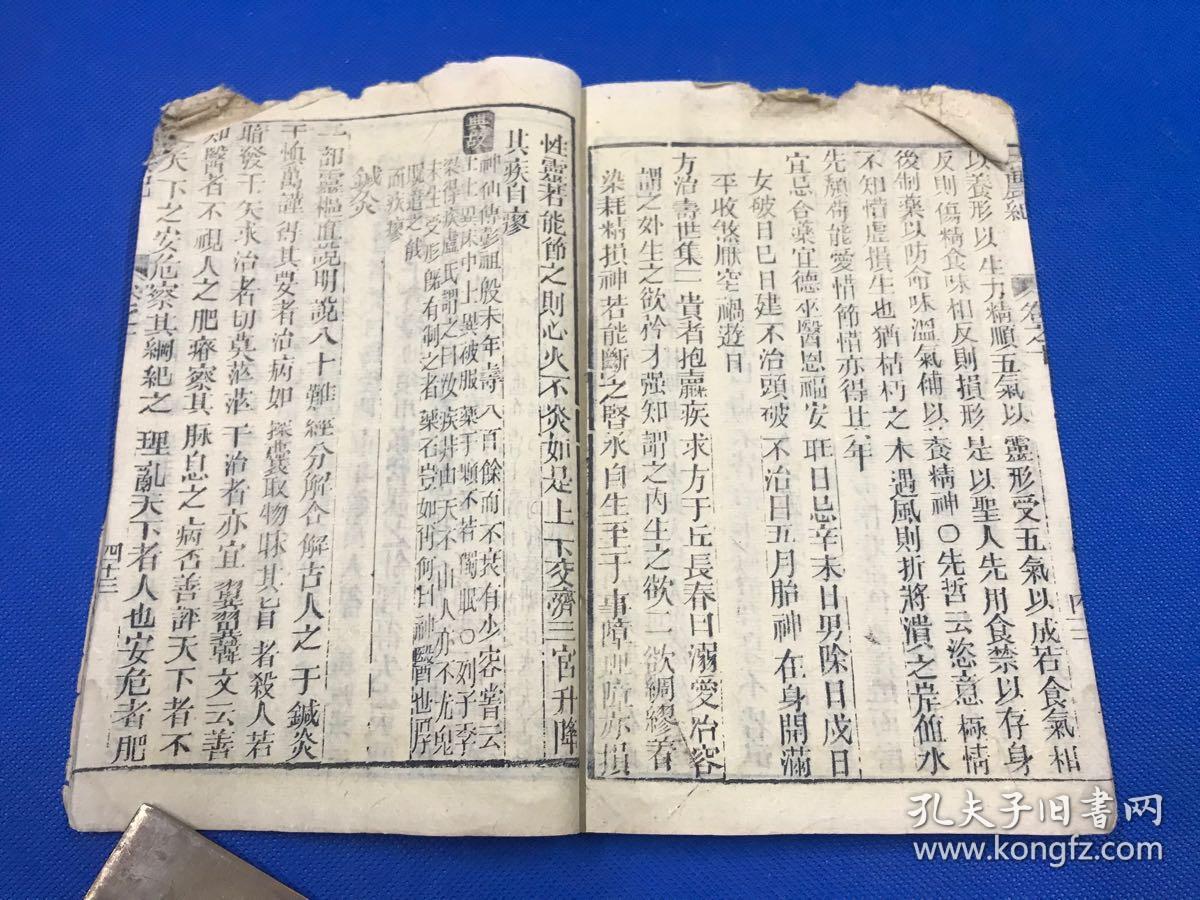 以養形以生力精順五氣以靈形受五氣以成若食氣相
反則傷精食味相反則損形是以聖人先用食禁以存身
後制藥以防命味溫氣補以養精神〇先哲云恣意極情
不知惜虛損生也猶枯朽之木遇風則折將潰之岸値水
先頹苟能愛惜節情亦得其年
宜忌合藥宜德巫醫恩福安班日忌辛未日男除日戊日
女破日巳日建不治頭破不治日五月胎神在身開滿
平收煞厭空禍遊日
方治壽世集二貴者抱羸疾求方于丘長春曰溺愛冶容
謂之外生之欲矜才强知謂之內生之欲二欲綢繆眷
染耗精損神若能斷之腎水自生至于事障理障亦損
性靈若能節之則心火不炎如是上下交濟三宮升降
其疾自廖
典故
神仙傳彭祖殷末年壽八百餘而不衰有少容嘗云
上士異床中士異被服藥千顆不若獨眠〇列子季
梁得疾盧氏謂之曰汝疾非由天不由人亦不尤鬼
末生受形旣有制之者藥石豈如何何曰神醫也厚
貺遣之俄
而疾瘳
鍼灸
二部靈樞直說明說八十難經分解合解古人之于鍼灸
千愼萬謹得其要者治病如探囊取物昧其旨者殺人若
暗發于矢求治者切莫茫茫干治者亦宜翼翼韓文云善
知醫者不視人之肥瘠察其脉息之病否善評天下者不
天下之安危察其綱紀之理亂天下者人也安危者肥
卷之十
四十三
孔夫子旧书网
www.kongfz.com